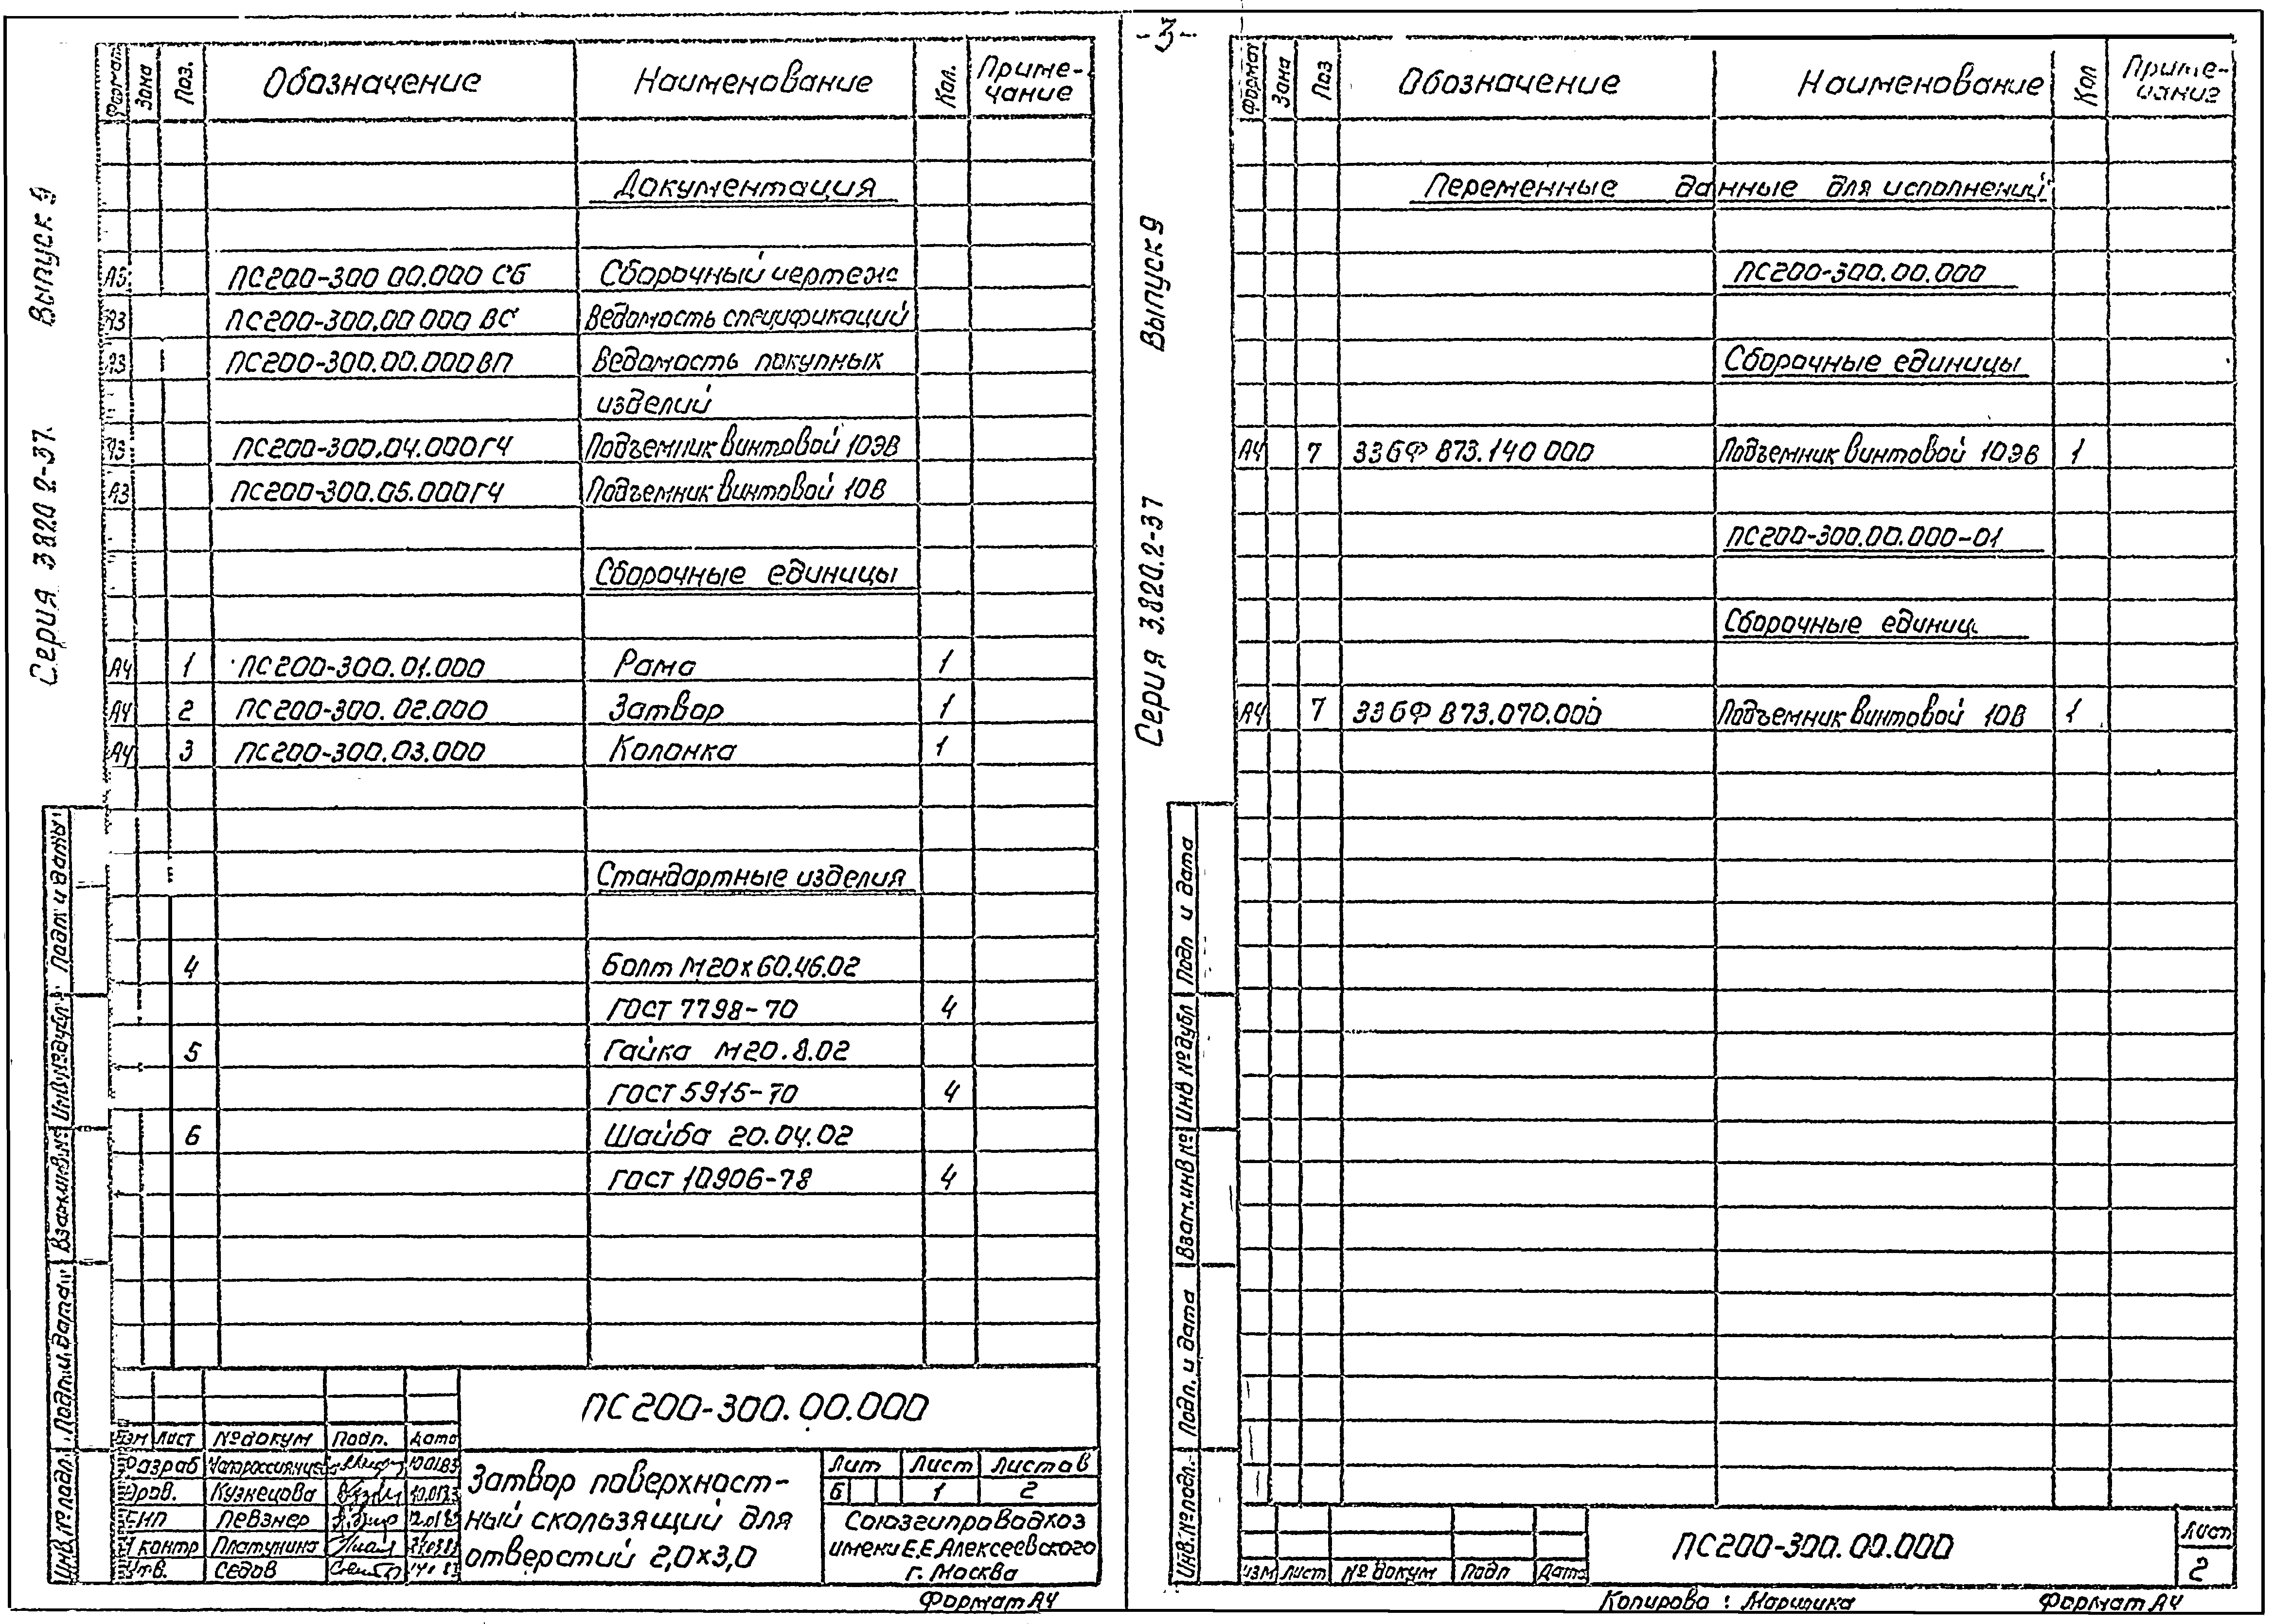 -3-
Серия 3820 2-37. Выпуск 9
Формат Зона Поз. Обозначение Наименование Кол. Приме-
чание
Документация
А3 ПС200-300 00.000 СБ Сборочный чертеж
А3 ПС200-300.00 000 ВС Ведомость спецификаций
А3 ПС200-300.00.000ВП Ведомость покупных
изделий
А3 ПС200-300.04.000ГЧ Подъемник винтовой 10ЭВ
А3 ПС200-300.05.000ГЧ Подъемник винтовой 10В
Сборочные единицы
А4 1 ПС200-300.01.000 Рама 1
А4 2 ПС200-300.02.000 Затвор 1
А4 3 ПС200-300.03.000 Колонка 1
Стандартные изделия
4 Болт М20х60.46.02
ГОСТ 7798-70 4
5 Гайка М20.8.02
ГОСТ 5915-70 4
6 Шайба 20.04.02
ГОСТ 10906-78 4
Инв.№ подл. Подп. и дата Взам.инв.№ Инв.№ дубл. Подп. и дата
ПС200-300.00.000
Изм Лист № докум Подп. Дата
Разраб 10.01.83
Пров. Кузнецова
ГИП Певзнер
Н контр Платунина
Утв. Седов
Затвор поверхност-
ный скользящий для
отверстий 2,0х3,0
Лит Лист Листов
Б 1 2
Союзгипроводхоз
имени Е.Е.Алексеевского
г. Москва
Формат А4
Серия 3.820.2-37 Выпуск 9
Формат Зона Поз Обозначение Наименование Кол Приме-
чание
Переменные данные для исполнений
ПС200-300.00.000
Сборочные единицы
А4 7 33БФ 873.140 000 Подъемник винтовой 10ЭВ 1
ПС200-300.00.000-01
Сборочные единиц
А4 7 33БФ 873.070.000 Подъемник винтовой 10В 1
Инв.№ подл. Подп. и дата Взам.инв № Инв №дубл Подп и дата
ПС200-300.00.000
Лист
2
Изм Лист № докум Подп Дата
Копирово: Формат А4